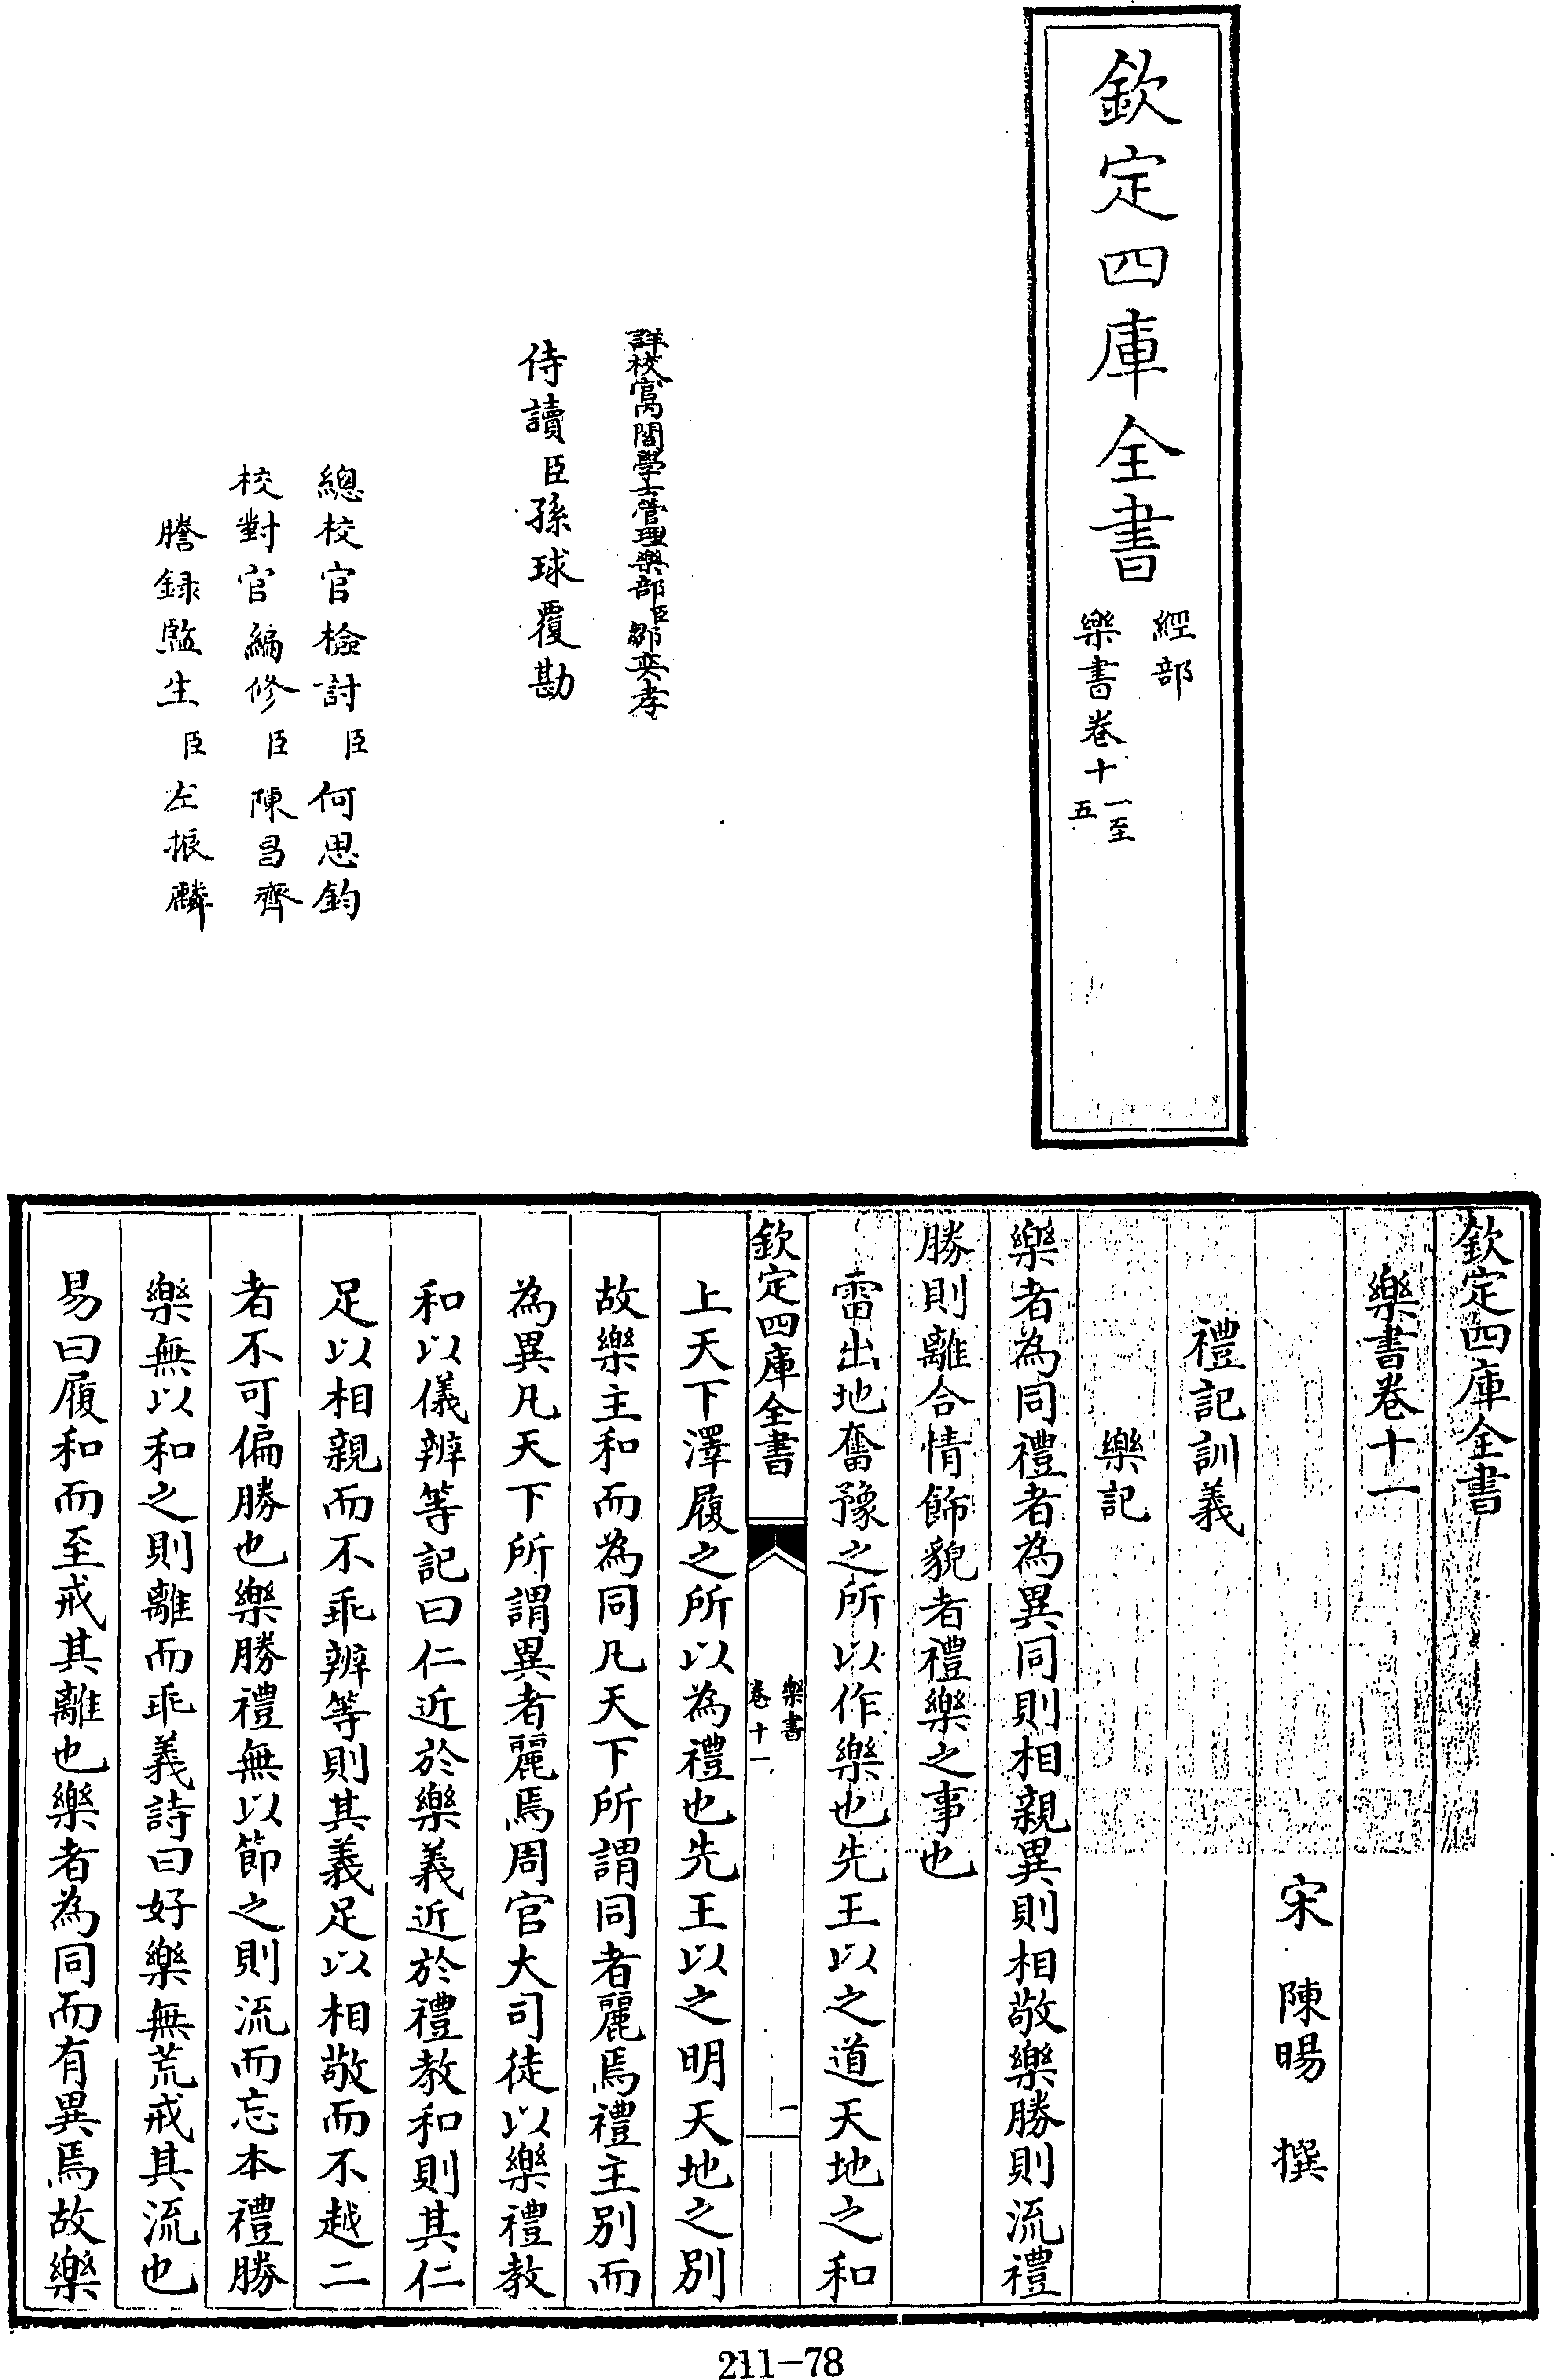 欽定四庫全書
經部
樂書卷十一至五
詳校官内閣學士管理樂部臣鄒奕孝
侍讀臣孫球覆勘
總校官檢討臣何思鈞
校對官編修臣陳昌齊
謄録監生臣左振麟
欽定四庫全書
樂書卷十一
宋 陳暘 撰
禮記訓義
樂記
樂者為同禮者為異同則相親異則相敬樂勝則流禮
勝則離合情飾貌者禮樂之事也
雷出地奮豫之所以作樂也先王以之道天地之和
欽定四庫全書
樂書
卷十一
一
上天下澤履之所以為禮也先王以之明天地之別
故樂主和而為同凡天下所謂同者麗焉禮主別而
為異凡天下所謂異者麗焉周官大司徒以樂禮教
和以儀辨等記曰仁近於樂義近於禮教和則其仁
足以相親而不乖辨等則其義足以相敬而不越二
者不可偏勝也樂勝禮無以節之則流而忘本禮勝
樂無以和之則離而乖義詩曰好樂無荒戒其流也
易曰履和而至戒其離也樂者為同而有異焉故樂
211-78